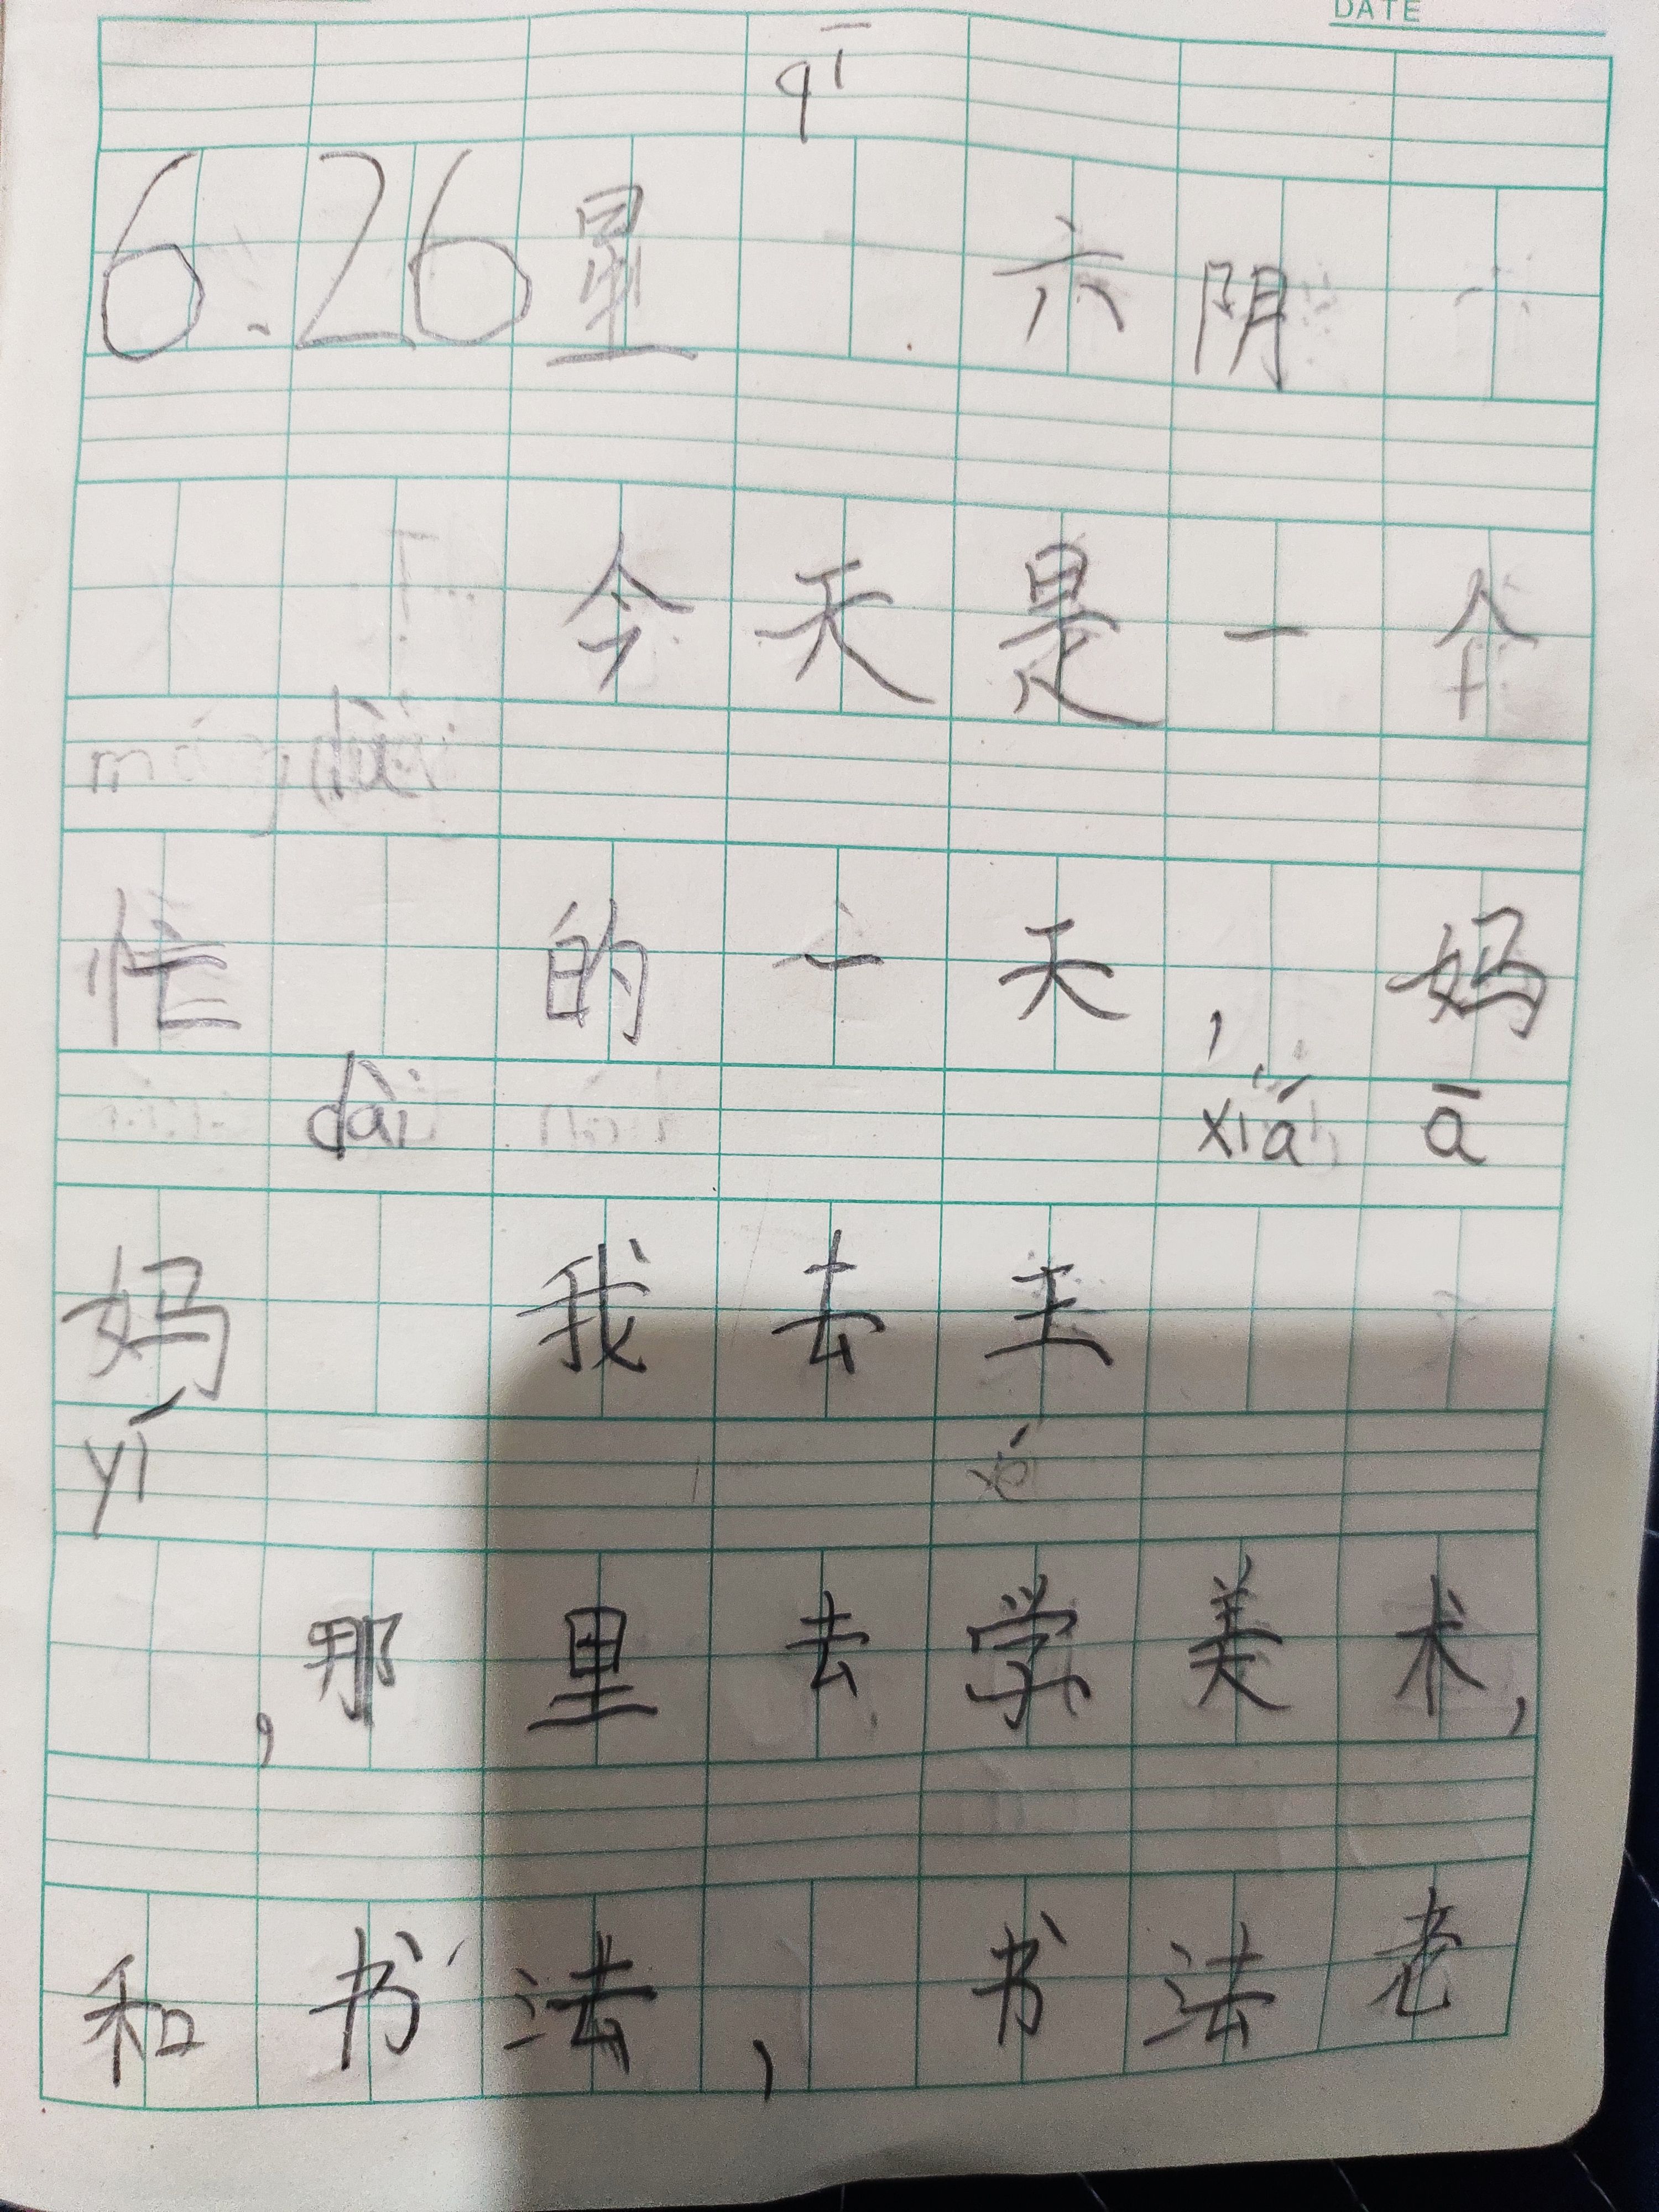 DATE
qī
6.26星 六阴
今天是一个
忙 的一天，妈
dài xiá ā
妈 我去主
yí
，那里去学美术，
和书法， 书法老